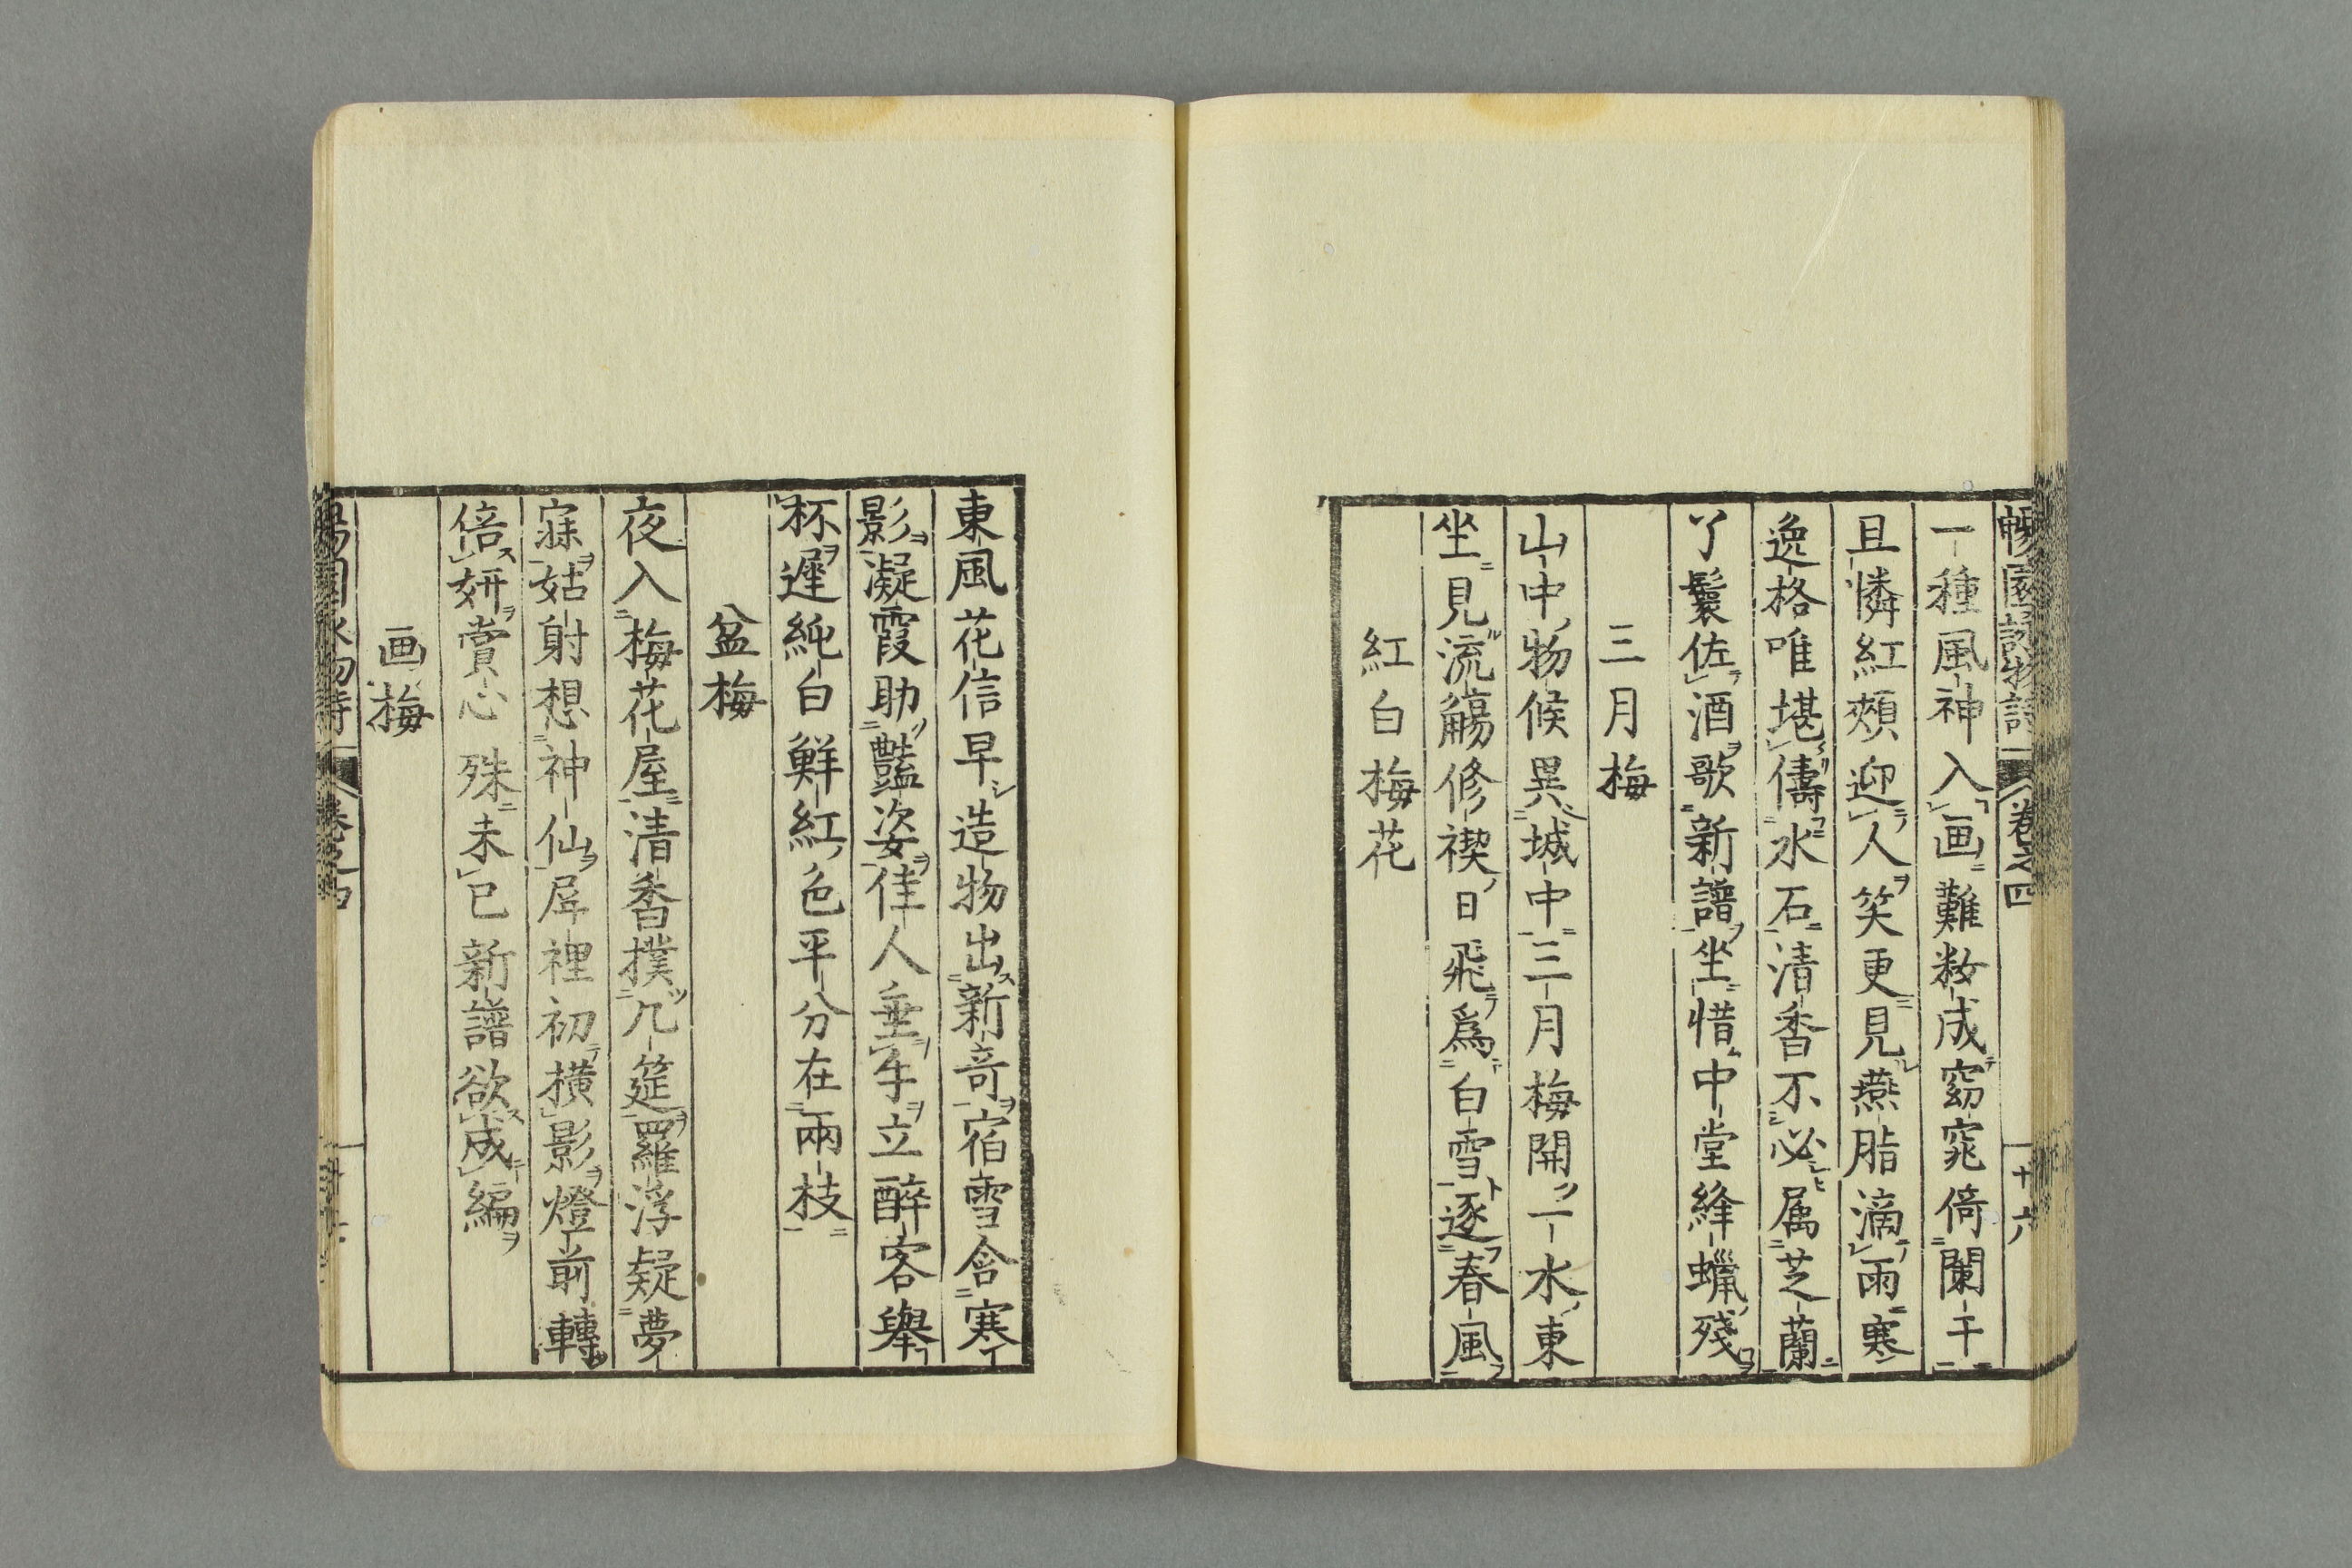 暢園詠物詩 卷之四 十六
一種風神入画難妝成窈窕倚闌干
且憐紅頰迎人笑更見燕脂滴雨寒
逸格唯堪儔水石清香不必属芝蘭
丫鬟佐酒歌新譜坐惜中堂絳蠟殘
三月梅
山中物候異城中三月梅開一水東
坐見流觴修禊日飛爲白雪逐春風
紅白梅花
東風花信早造物出新竒宿雪含寒
影凝霞助豔姿佳人垂手立醉客舉
杯遲純白鮮紅色平分在兩枝
盆梅
夜入梅花屋清香撲几筵羅浮疑夢
寐姑射想神仙屏裡初橫影燈前轉
倍妍賞心殊未已新譜欲成編
画梅
卷之四